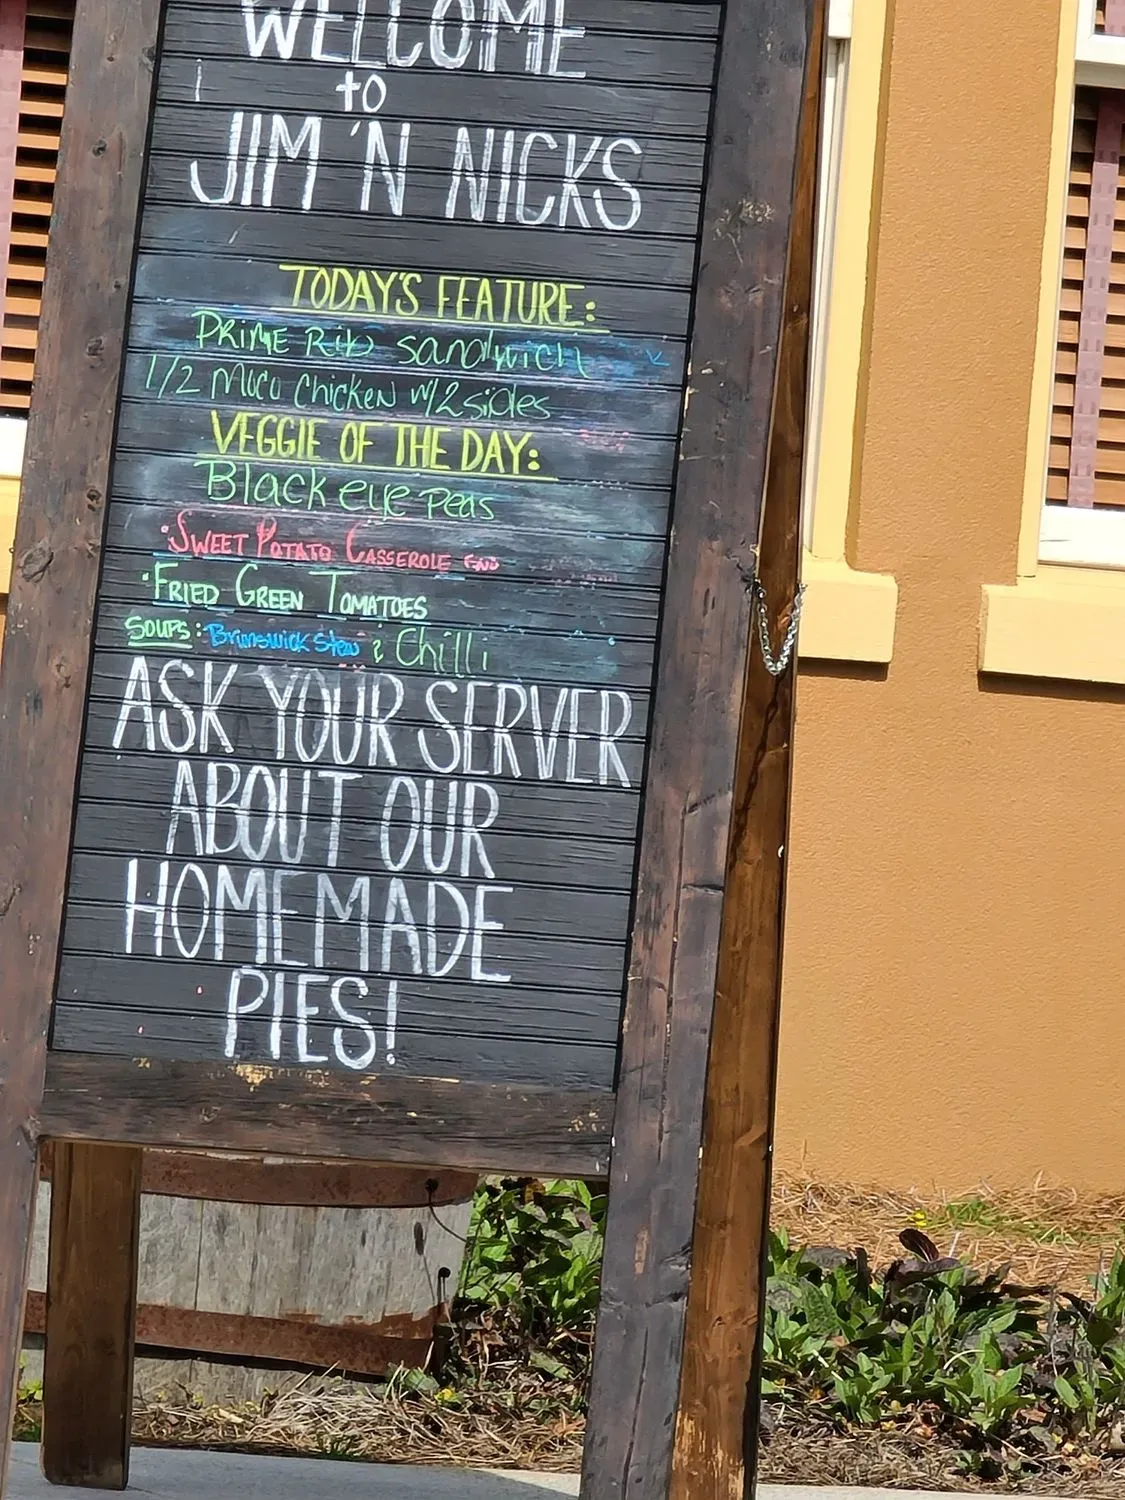 WELCOME
to
JIM 'N NICKS
TODAY'S FEATURE:
PRIME Rib Sandwich
1/2 Moco Chicken w/2 sides
VEGGIE OF THE DAY:
Black eye Peas
·SWEET POTATO CASSEROLE
·FRIED GREEN TOMATOES
SOUPS: Brunswick Stew & Chilli
ASK YOUR SERVER
ABOUT OUR
HOMEMADE
PIES!